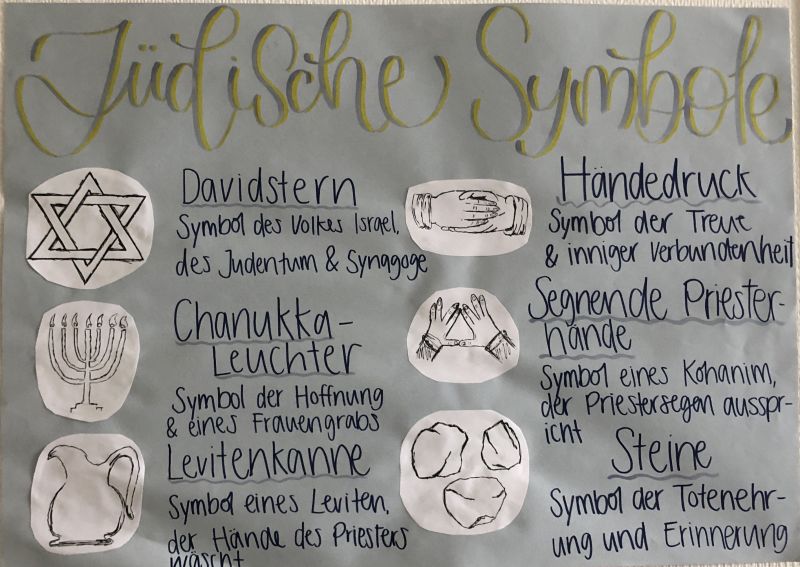 Jüdische Symbole
Davidstern
Symbol des Volkes Israel,
des Judentum & Synagoge
Chanukka-
Leuchter
Symbol der Hoffnung
& eines Frauengrabs
Levitenkanne
Symbol eines Leviten,
der Hände des Priesters
wäscht
Händedruck
Symbol der Treue
& inniger Verbundenheit
Segnende Priester-
hände
Symbol eines Kohanim,
der Priestersegen ausspr-
icht
Steine
Symbol der Totenehr-
ung und Erinnerung